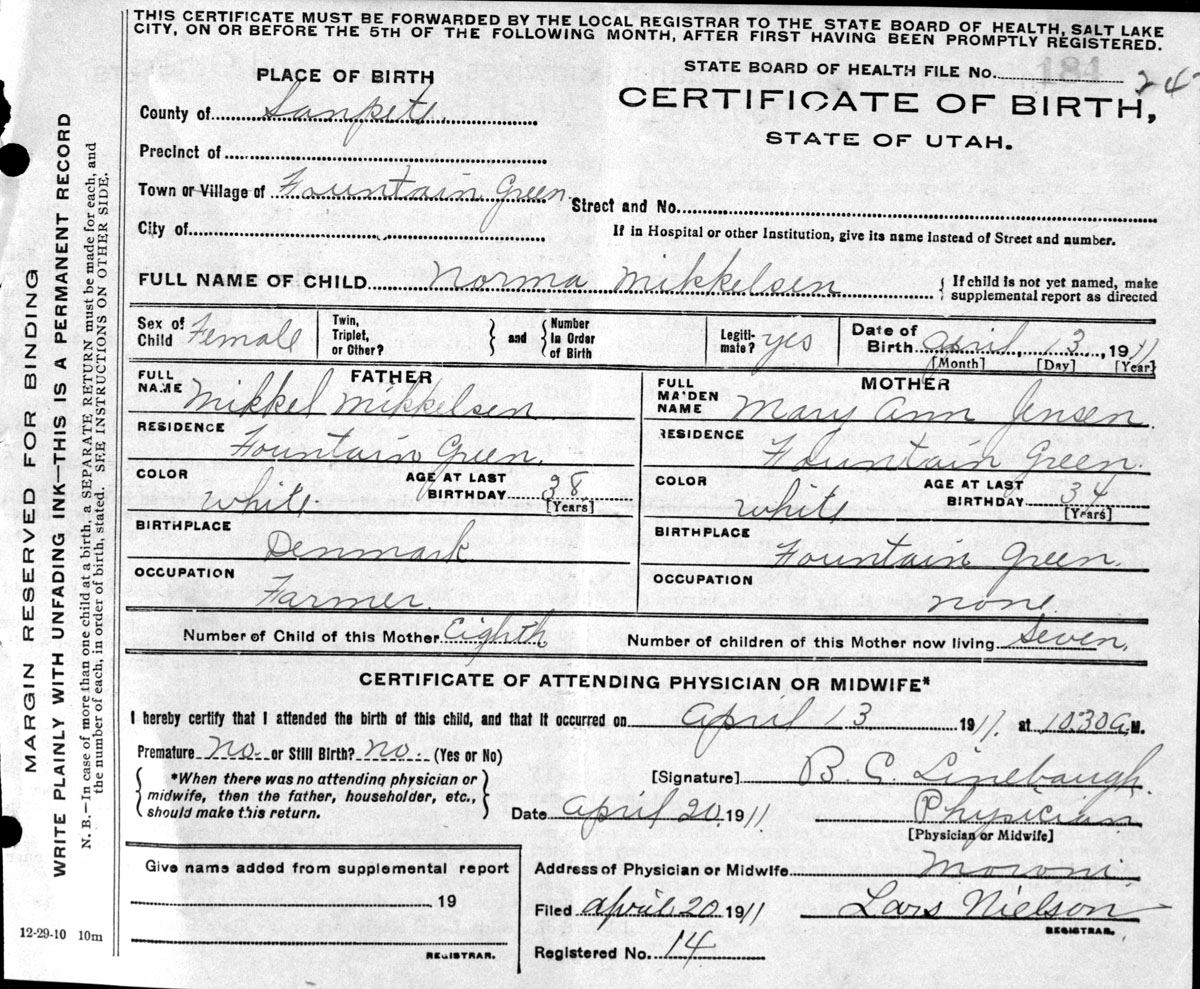 THIS CERTIFICATE MUST BE FORWARDED BY THE LOCAL REGISTRAR TO THE STATE BOARD OF HEALTH, SALT LAKE
CITY, ON OR BEFORE THE 5TH OF THE FOLLOWING MONTH, AFTER FIRST HAVING BEEN PROMPTLY REGISTERED.
MARGIN RESERVED FOR BINDING
WRITE PLAINLY WITH UNFADING INK—THIS IS A PERMANENT RECORD
N. B.—In case of more than one child at a birth, a SEPARATE RETURN must be made for each, and
the number of each, in order of birth, stated. SEE INSTRUCTIONS ON OTHER SIDE.
PLACE OF BIRTH
STATE BOARD OF HEALTH FILE No. 184
CERTIFICATE OF BIRTH,
STATE OF UTAH.
County of Sanpete.
Precinct of
Town or Village of Fountain Green. Street and No.
City of
If in Hospital or other Institution, give its name instead of Street and number.
FULL NAME OF CHILD Norma Mikkelsen { If child is not yet named, make
supplemental report as directed
Sex of Child Female Twin, Triplet, or Other? } and { Number In Order of Birth Legiti-mate? yes Date of Birth April, 13, 1911
[Month] [Day] [Year]
FATHER
FULL NAME Mikkel Mikkelsen
RESIDENCE Fountain Green.
COLOR White AGE AT LAST BIRTHDAY 38 [Years]
BIRTHPLACE Denmark.
OCCUPATION Farmer.
MOTHER
FULL MAIDEN NAME Mary Ann Jensen.
RESIDENCE Fountain Green.
COLOR White AGE AT LAST BIRTHDAY 34 [Years]
BIRTHPLACE Fountain Green.
OCCUPATION none
Number of Child of this Mother Eighth Number of children of this Mother now living Seven.
CERTIFICATE OF ATTENDING PHYSICIAN OR MIDWIFE*
I hereby certify that I attended the birth of this child, and that it occurred on April 13 1911. at 10.30 a.M.
Premature no. or Still Birth? no. (Yes or No)
{ *When there was no attending physician or
midwife, then the father, householder, etc.,
should make this return. }
[Signature] B. C. Linebaugh.
Date April 20, 1911 Physician
[Physician or Midwife]
Give name added from supplemental report
19
REGISTRAR.
Address of Physician or Midwife Moroni
Filed April, 20 1911 Lars Nielson
REGISTRAR.
Registered No. 14
12-29-10 10m